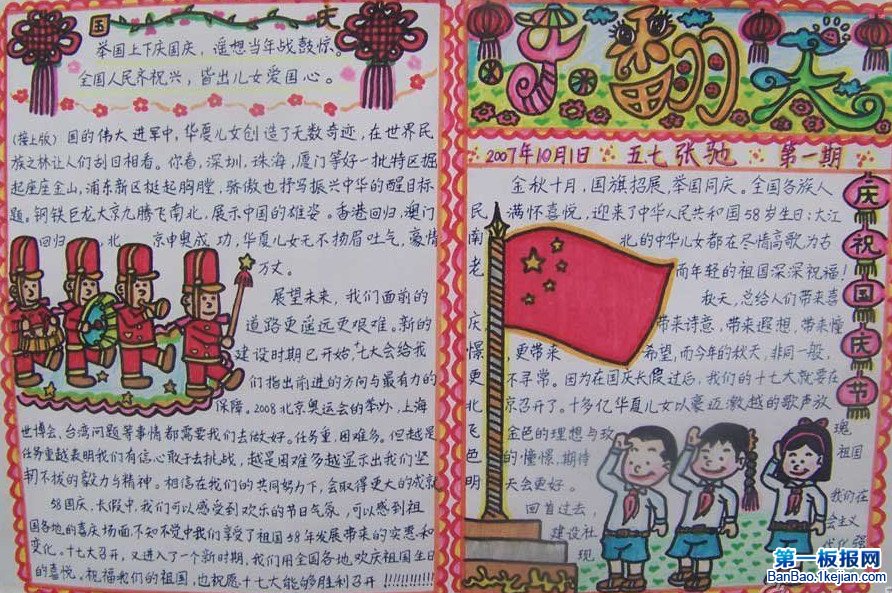 国 庆
举国上下庆国庆，遥想当年战鼓惊。
全国人民齐祝兴，皆出儿女爱国心。
(接上版) 国的伟大进军中，华厦儿女创造了无数奇迹，在世界民
族之林让人们刮目相看。你看，深圳，珠海，厦门等好一批特区掘
起座座金山，浦东新区挺起胸膛，骄傲也抒写振兴中华的醒目标
题。钢铁巨龙大京九腾飞南北，展示中国的雄姿。香港回归，澳门
回归，北京申奥成功，华厦儿女无不扬眉吐气，豪情
万丈。
展望未来，我们面前的
道路更遥远更艰难。新的
建设时期已开始，十七大会给我
们指出前进的方向与最有力的
保障。2008北京奥运会的举办，上海
世博会，台湾问题等事情都需要我们去做好。任务重，困难多。但越是
任务重越表明我们有信心敢于去挑战，越是困难多越显示出我们坚
韧不拔的毅力与精神。相信在我们的共同努力下，会取得更大的成就
58国庆，长假中，我们可以感受到欢乐的节日气氛，可以感到祖
国各地的喜庆场面，不知不觉中我们享受了祖国58年发展带来的实惠和
变化。十七大召开，又进入了一个新时期，我们用全国各地欢庆祖国生日
的喜悦。祝福我们的祖国，也祝愿十七大能够胜利召开!!!!!!!!!!!
乐翻天
2007年10月1日 五七张驰 第一期
庆祝国庆节
金秋十月，国旗招展，举国同庆。全国各族人
民满怀喜悦，迎来了中华人民共和国58岁生日：大江
南北的中华儿女都在尽情高歌，为古
老而年轻的祖国深深祝福!
秋天，总给人们带来喜
庆带来诗意，带来遐想，带来憧
憬，更带来希望，而今年的秋天，非同一般，
更不寻常。因为在国庆长假过后，我们的十七大就要在
北京召开了。十多亿华厦儿女以豪迈激越的歌声放
飞金色的理想与玫瑰
色的憧憬，期待祖国
明天会更好。
回首过去，我们在
建设社会主义
现代化强
第一板报网
BanBao.1kejian.com